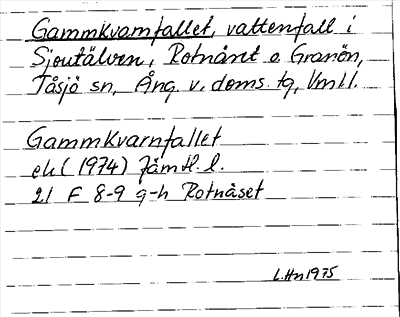 Gammkvarnfallet, vattenfall i
Sjoutälven, Rotnäset o. Granön,
Tåsjö sn, Ång. v. doms. tg, Vmll.
Gammkvarnfallet
ek (1974) Jämtl. l.
21 F 8-9 g-h Rotnäset
L.Hn 1975